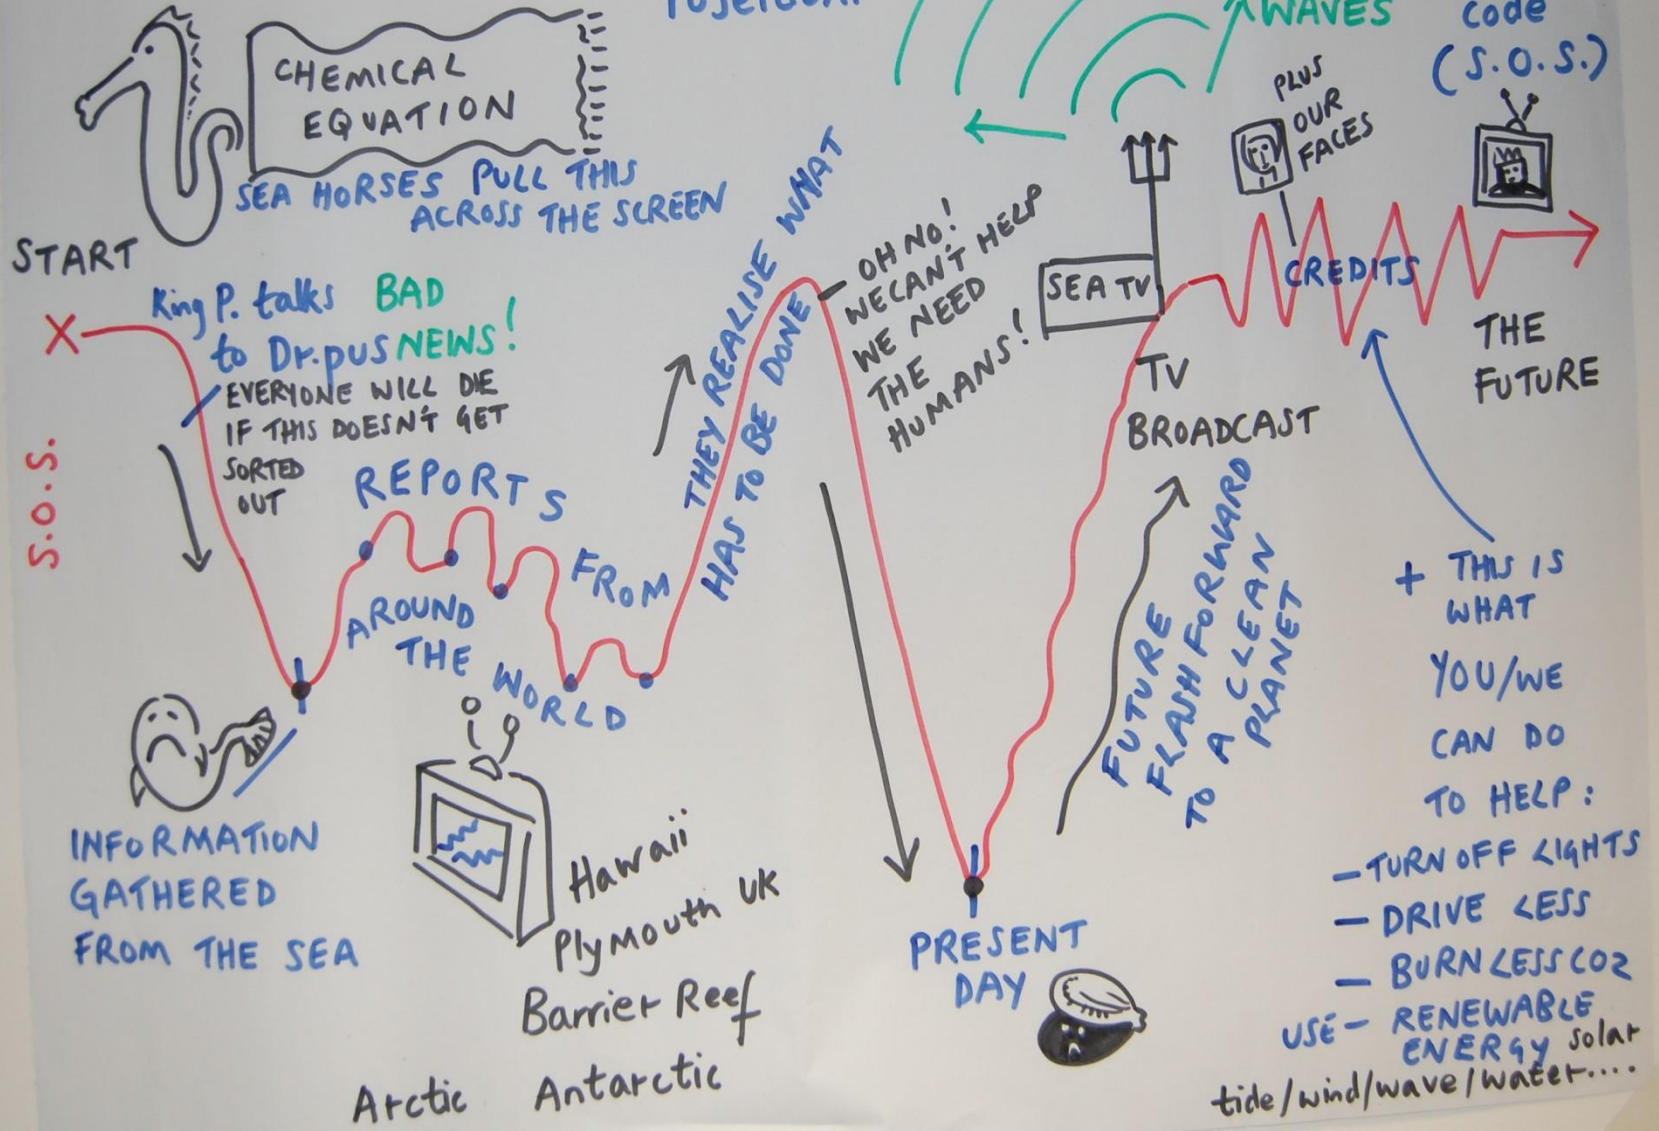 WAVES
code
(S.O.S.)
CHEMICAL
EQUATION
SEA HORSES PULL THIS
ACROSS THE SCREEN
PLUS
OUR
FACES
START
X
King P. talks BAD
to Dr.pus NEWS!
EVERYONE WILL DIE
IF THIS DOESN'T GET
SORTED
OUT
S.O.S.
REPORTS
FROM
AROUND
THE WORLD
THEY REALISE WHAT
HAS TO BE DONE
OH NO!
WE CAN'T HELP
WE NEED
THE
HUMANS!
SEA TV
TV
BROADCAST
CREDITS
THE
FUTURE
FUTURE
FLASH FORWARD
TO A CLEAN
PLANET
INFORMATION
GATHERED
FROM THE SEA
Hawaii
Plymouth UK
Barrier Reef
Arctic Antarctic
PRESENT
DAY
+ THIS IS
WHAT
YOU/WE
CAN DO
TO HELP:
- TURN OFF LIGHTS
- DRIVE LESS
- BURN LESS CO2
USE - RENEWABLE
ENERGY solar
tide/wind/wave/water....